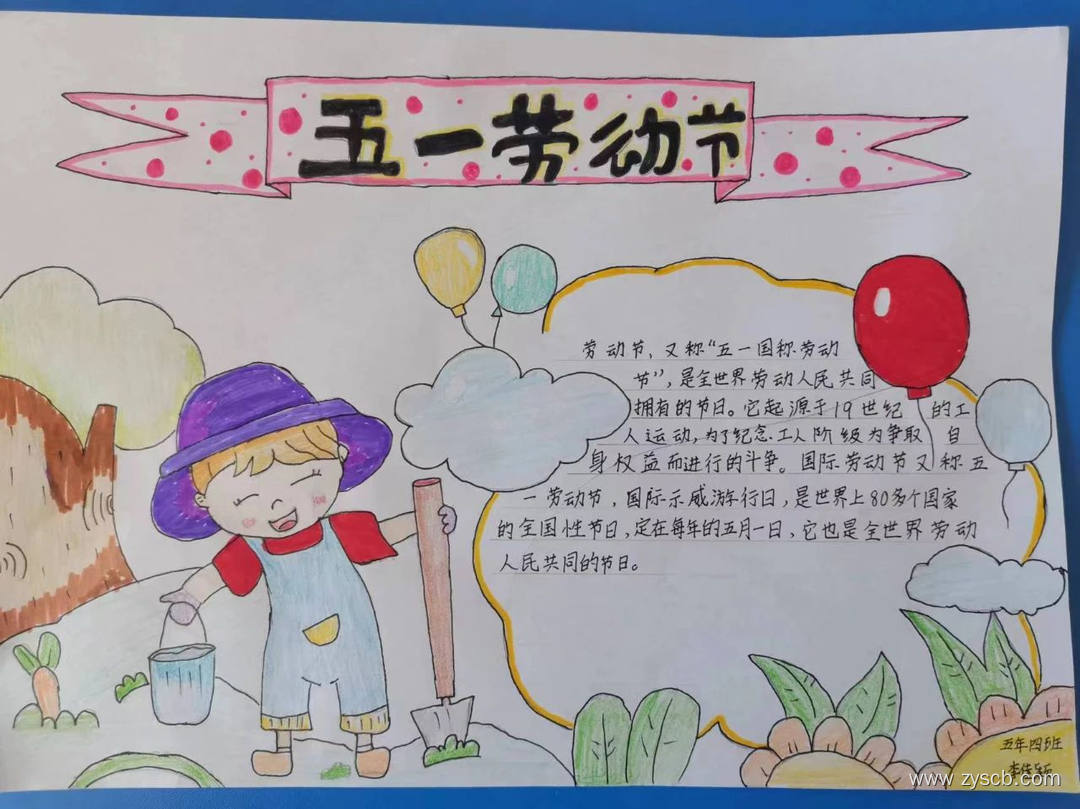 五一劳动节
劳动节，又称“五一国称劳动
节”，是全世界劳动人民共同
拥有的节日。它起源于19世纪的工
人运动，为了纪念工人阶级为争取自
身权益而进行的斗争。国际劳动节又称五
一劳动节，国际示威游行日，是世界上80多个国家
的全国性节日，定在每年的五月一日，它也是全世界劳动
人民共同的节日。
五年四班
www.zyscb.com